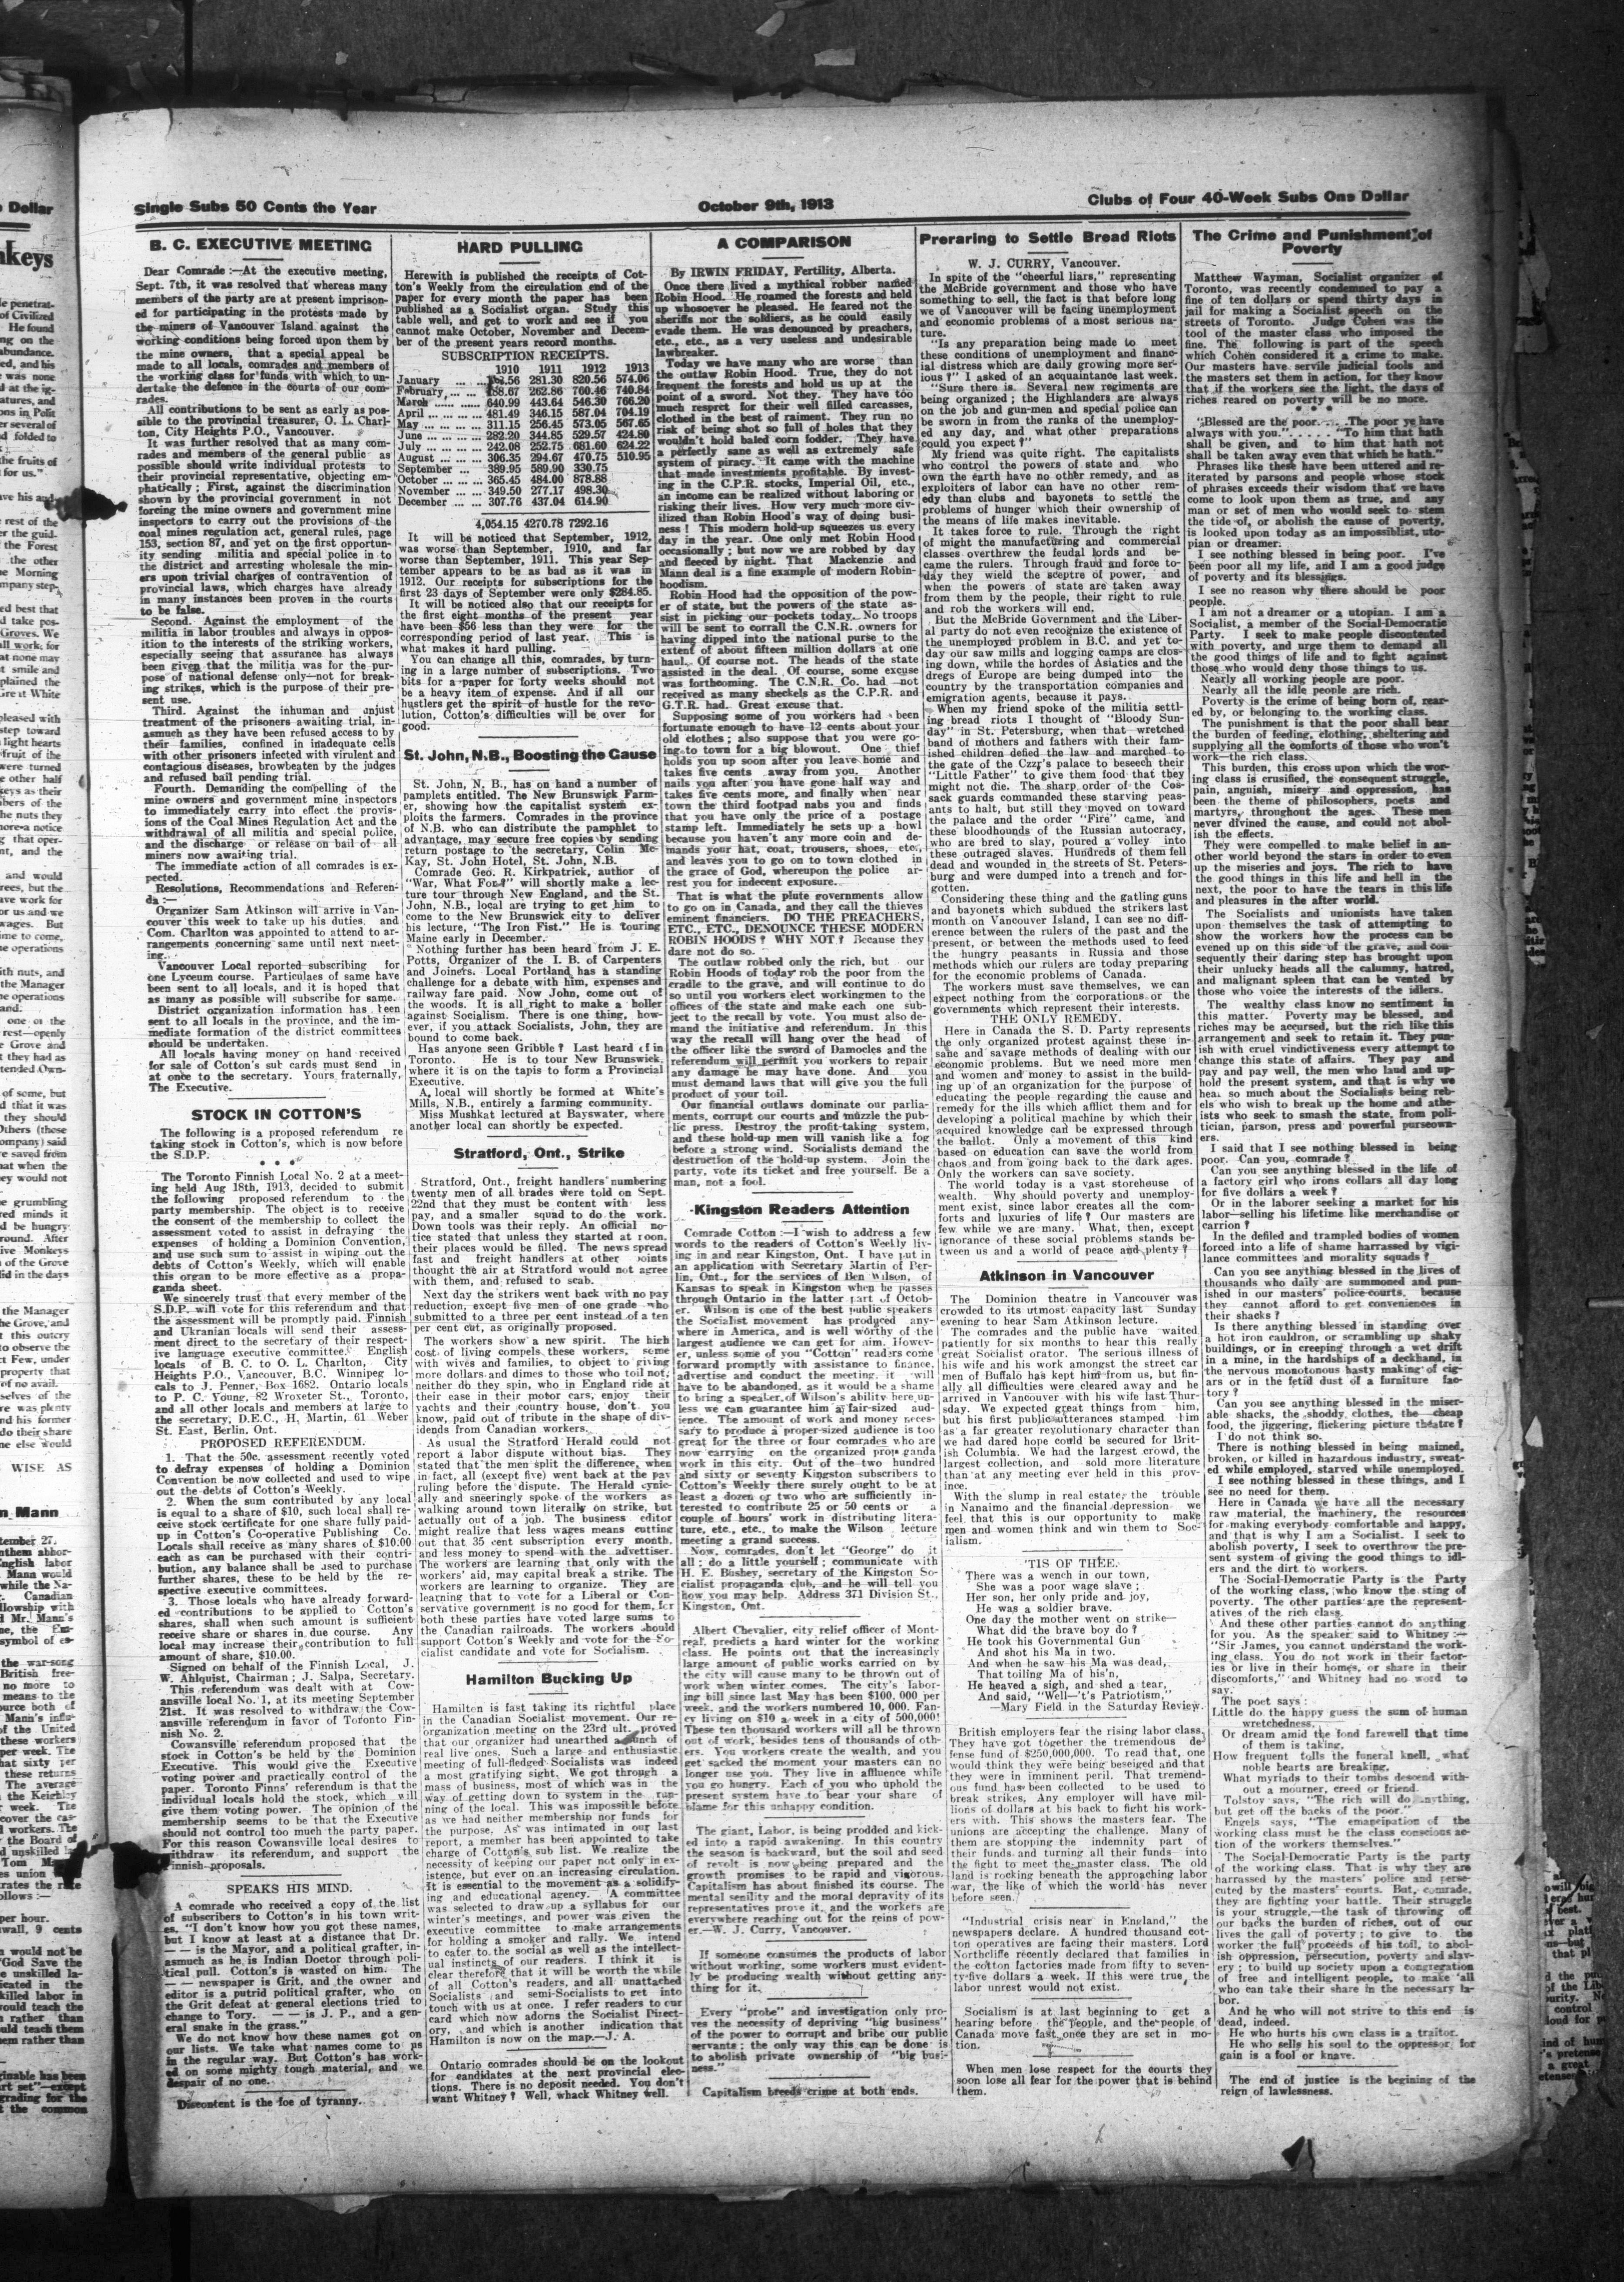 Single Subs 50 Cents the Year
October 9th, 1913
Clubs of Four 40-Week Subs One Dollar
B. C. EXECUTIVE MEETING
Dear Comrade :—At the executive meeting,
Sept. 7th, it was resolved that whereas many
members of the party are at present imprison-
ed for participating in the protests made by
the miners of Vancouver Island against the
working conditions being forced upon them by
the mine owners, that a special appeal be
made to all locals, comrades and members of
the working class for funds with which to un-
dertake the defence in the courts of our com-
rades.
All contributions to be sent as early as pos-
sible to the provincial treasurer, O. L. Charl-
ton, City Heights P.O., Vancouver.
It was further resolved that as many com-
rades and members of the general public as
possible should write individual protests to
their provincial representative, objecting em-
phatically ; First, against the discrimination
shown by the provincial government in not
forcing the mine owners and government mine
inspectors to carry out the provisions of the
coal mines regulation act, general rules, page
153, section 87, and yet on the first opportun-
ity sending militia and special police in to
the district and arresting wholesale the min-
ers upon trivial charges of contravention of
provincial laws, which charges have already
in many instances been proven in the courts
to be false.
Second. Against the employment of the
militia in labor troubles and always in oppos-
ition to the interests of the striking workers,
especially seeing that assurance has always
been given that the militia was for the pur-
pose of national defense only—not for break-
ing strikes, which is the purpose of their pre-
sent use.
Third. Against the inhuman and unjust
treatment of the prisoners awaiting trial, in-
asmuch as they have been refused access to by
their families, confined in inadequate cells
with other prisoners infected with virulent and
contagious diseases, browbeaten by the judges
and refused bail pending trial.
Fourth. Demanding the compelling of the
mine owners and government mine inspectors
to immediately carry into effect the provis-
ions of the Coal Mines Regulation Act and the
withdrawal of all militia and special police,
and the discharge or release on bail of all
miners now awaiting trial.
The immediate action of all comrades is ex-
pected.
Resolutions, Recommendations and Referen-
da :—
Organizer Sam Atkinson will arrive in Van-
couver this week to take up his duties, and
Com. Charlton was appointed to attend to ar-
rangements concerning same until next meet-
ing.
Vancouver Local reported subscribing for
one Lyceum course. Particulars of same have
been sent to all locals, and it is hoped that
as many as possible will subscribe for same.
District organization information has been
sent to all locals in the province, and the im-
mediate formation of the district committees
should be undertaken.
All locals having money on hand received
for sale of Cotton's sub cards must send in
at once to the secretary. Yours fraternally,
The Executive.
STOCK IN COTTON'S
The following is a proposed referendum re
taking stock in Cotton's, which is now before
the S.D.P.
* * *
The Toronto Finnish Local No. 2 at a meet-
ing held Aug 18th, 1913, decided to submit
the following proposed referendum to the
party membership. The object is to receive
the consent of the membership to collect the
assessment voted to assist in defraying the
expenses of holding a Dominion Convention,
and use such sum to assist in wiping out the
debts of Cotton's Weekly, which will enable
this organ to be more effective as a propa-
ganda sheet.
We sincerely trust that every member of the
S.D.P. will vote for this referendum and that
the assessment will be promptly paid. Finnish
and Ukranian locals will send their assess-
ment direct to the secretary of their respect-
ive language executive committee. English
locals of B. C. to O. L. Charlton, City
Heights P.O., Vancouver, B.C. Winnipeg lo-
cals to J. Penner, Box 1682. Ontario locals
to P. C. Young, 82 Wroxeter St., Toronto,
and all other locals and members at large to
the secretary, D.E.C., H. Martin, 61 Weber
St. East, Berlin, Ont.
PROPOSED REFERENDUM.
1. That the 50c. assessment recently voted
to defray expenses of holding a Dominion
Convention be now collected and used to wipe
out the debts of Cotton's Weekly.
2. When the sum contributed by any local
is equal to a share of $10, such local shall re-
ceive stock certificate for one share fully paid-
up in Cotton's Co-operative Publishing Co.
Locals shall receive as many shares of $10.00
each as can be purchased with their contri-
bution, any balance shall be used to purchase
further shares, these to be held by the re-
spective executive committees.
3. Those locals who have already forward-
ed contributions to be applied to Cotton's
shares, shall when such amount is sufficient
receive share or shares in due course. Any
local may increase their contribution to full
amount of share, $10.00.
Signed on behalf of the Finnish Local, J.
W. Ahlquist, Chairman ; J. Salpa, Secretary.
This referendum was dealt with at Cow-
ansville local No. 1, at its meeting September
21st. It was resolved to withdraw the Cow-
ansville referendum in favor of Toronto Fin-
nish No. 2.
Cowansville referendum proposed that the
stock in Cotton's be held by the Dominion
Executive. This would give the Executive
voting power and practically control of the
paper. Toronto Finns' referendum is that the
individual locals hold the stock, which will
give them voting power. The opinion of the
membership seems to be that the Executive
should not control too much the party paper.
For this reason Cowansville local desires to
withdraw its referendum, and support the
Finnish proposals.
SPEAKS HIS MIND.
A comrade who received a copy of the list
of subscribers to Cotton's in his town writ-
es. "I don't know how you got these names,
but I know at least at a distance that Dr.
— — is the Mayor, and a political grafter, in-
asmuch as he is Indian Doctor through poli-
tical pull. Cotton's is wasted on him. The
— — newspaper is Grit, and the owner and
editor is a putrid political grafter, who on
the Grit defeat at general elections tried to
change to Tory. — — is J. P., and a gen-
eral snake in the grass."
We do not know how these names got on
our lists. We take what names come to us
in the regular way. But Cotton's has work-
ed on some mighty tough material, and we
despair of no one.
Discontent is the foe of tyranny.
HARD PULLING
Herewith is published the receipts of Cot-
ton's Weekly from the circulation end of the
paper for every month the paper has been
published as a Socialist organ. Study this
table well, and get to work and see if you
cannot make October, November and Decem-
ber of the present years record months.
SUBSCRIPTION RECEIPTS.
1910 1911 1912 1913
January ... ... 281.30 820.56 574.06
February, ... ... 262.86 760.46 740.84
March ... ... 640.99 443.64 546.30 766.20
April ... ... ... 481.49 346.15 587.04 704.19
May ... ... ... 311.15 256.45 573.05 567.65
June ... ... ... 282.20 344.85 529.57 424.80
July ... ... ... 242.08 252.75 681.60 624.22
August ... ... ... 306.35 294.67 470.75 510.95
September ... 389.95 589.90 330.75
October ... ... 365.45 484.00 878.88
November ... ... 349.50 277.17 498.30
December ... ... 307.76 437.04 614.90
4,054.15 4270.78 7292.16
It will be noticed that September, 1912,
was worse than September, 1910, and far
worse than September, 1911. This year Sep-
tember appears to be as bad as it was in
1912. Our receipts for subscriptions for the
first 23 days of September were only $284.85.
It will be noticed also that our receipts for
the first eight months of the present year
have been $56 less than they were for the
corresponding period of last year. This is
what makes it hard pulling.
You can change all this, comrades, by turn-
ing in a large number of subscriptions. Two
bits for a paper for forty weeks should not
be a heavy item of expense. And if all our
hustlers get the spirit of hustle for the revo-
lution, Cotton's difficulties will be over for
good.
St. John, N.B., Boosting the Cause
St. John, N. B., has on hand a number of
pamplets entitled. The New Brunswick Farm-
er, showing how the capitalist system ex-
ploits the farmers. Comrades in the province
of N.B. who can distribute the pamphlet to
advantage, may secure free copies by sending
return postage to the secretary, Colin Mc-
Kay, St. John Hotel, St. John, N.B.
Comrade Geo. R. Kirkpatrick, author of
"War, What For?" will shortly make a lec-
ture tour through New England, and the St.
John, N.B., local are trying to get him to
come to the New Brunswick city to deliver
his lecture, "The Iron Fist." He is touring
Maine early in December.
Nothing further has been heard from J. E.
Potts, Organizer of the I. B. of Carpenters
and Joiners. Local Portland has a standing
challenge for a debate with him, expenses and
railway fare paid. Now John, come out of
the woods. It is all right to make a holler
against Socialism. There is one thing, how-
ever, if you attack Socialists, John, they are
bound to come back.
Has anyone seen Gribble ? Last heard of in
Toronto. He is to tour New Brunswick,
where it is on the tapis to form a Provincial
Executive.
A local will shortly be formed at White's
Mills, N.B., entirely a farming community.
Miss Mushkat lectured at Bayswater, where
another local can shortly be expected.
Stratford, Ont., Strike
Stratford, Ont., freight handlers' numbering
twenty men of all brades were told on Sept.
22nd that they must be content with less
pay, and a smaller squad to do the work.
Down tools was their reply. An official no-
tice stated that unless they started at noon,
their places would be filled. The news spread
fast and freight handlers at other points
thought the air at Stratford would not agree
with them, and refused to scab.
Next day the strikers went back with no pay
reduction, except five men of one grade who
submitted to a three per cent instead of a ten
per cent cut, as originally proposed.
The workers show a new spirit. The high
cost of living compels these workers, some
with wives and families, to object to giving
more dollars and dimes to those who toil not,
neither do they spin, who in England ride at
their ease in their motor cars, enjoy their
yachts and their country house, don't you
know, paid out of tribute in the shape of div-
idends from Canadian workers.
As usual the Stratford Herald could not
report a labor dispute without bias. They
stated that the men split the difference, when
in fact, all (except five) went back at the pay
ruling before the dispute. The Herald cynic-
ally and sneeringly spoke of the workers as
walking around town literally on strike, but
actually out of a job. The business editor
might realize that less wages means cutting
out that 35 cent subscription every month,
and less money to spend with the advettiser.
The workers are learning that only with the
workers' aid, may capital break a strike. The
workers are learning to organize. They are
learning that to vote for a Liberal or Con-
servative government is no good for them, for
both these parties have voted large sums to
the Canadian railroads. The workers should
support Cotton's Weekly and vote for the So-
cialist candidate and vote for Socialism.
Hamilton Bucking Up
Hamilton is fast taking its rightful place
in the Canadian Socialist movement. Our re-
organization meeting on the 23rd ult. proved
that our organizer had unearthed a bunch of
real live ones. Such a large and enthusiastic
meeting of full-fledged Socialists was indeed
a most gratifying sight. We got through a
mass of business, most of which was in the
way of getting down to system in the run-
ning of the local. This was impossible before
as we had neither membership nor funds for
the purpose. As was intimated in our last
report, a member has been appointed to take
charge of Cotton's sub list. We realize the
necessity of keeping our paper not only in ex-
istence, but ever on an increasing circulation.
It is essential to the movement as a solidify-
ing and educational agency. A committee
was selected to draw up a syllabus for our
winter's meetings, and power was given the
executive committee to make arrangements
for holding a smoker and rally. We intend
to cater to the social as well as the intellect-
ual instincts of our readers. I think it is
clear therefore that it will be worth the while
of all Cotton's readers, and all unattached
Socialists and semi-Socialists to get into
touch with us at once. I refer readers to cur
card which now adorns the Socialist Direct-
ory, and which is another indication that
Hamilton is now on the map.—J. A.
Ontario comrades should be on the lookout
for candidates at the next provincial elec-
tions. There is no deposit needed. You don't
want Whitney ? Well, whack Whitney well.
A COMPARISON
By IRWIN FRIDAY, Fertility, Alberta.
Once there lived a mythical robber named
Robin Hood. He roamed the forests and held
up whosoever he pleased. He feared not the
sheriffs nor the soldiers, as he could easily
evade them. He was denounced by preachers,
etc., etc., as a very useless and undesirable
lawbreaker.
Today we have many who are worse than
the outlaw Robin Hood. True, they do not
frequent the forests and hold us up at the
point of a sword. Not they. They have too
much respret for their well filled carcasses,
clothed in the best of raiment. They run no
risk of being shot so full of holes that they
wouldn't hold baled corn fodder. They have
a perfectly sane as well as extremely safe
system of piracy. It came with the machine
that made investments profitable. By invest-
ing in the C.P.R. stocks, Imperial Oil, etc.,
an income can be realized without laboring or
risking their lives. How very much more civ-
ilized than Robin Hood's way of doing busi-
ness ! This modern hold-up squeezes us every
day in the year. One only met Robin Hood
occasionally ; but now we are robbed by day
and fleeced by night. That Mackenzie and
Mann deal is a fine example of modern Robin-
hoodism.
Robin Hood had the opposition of the pow-
er of state, but the powers of the state as-
sist in picking our pockets today. No troops
will be sent to corrall the C.N.R. owners for
having dipped into the national purse to the
extent of about fifteen million dollars at one
haul. Of course not. The heads of the state
assisted in the deal. Of course, some excuse
was forthcoming. The C.N.R. Co. had not
received as many sheckels as the C.P.R. and
G.T.R. had. Great excuse that.
Supposing some of you workers had been
fortunate enough to have 12 cents about your
old clothes ; also suppose that you were go-
ing to town for a big blowout. One thief
holds you up soon after you leave home and
takes five cents away from you. Another
nails you after you have gone half way and
takes five cents more, and finally when near
town the third footpad nabs you and finds
that you have only the price of a postage
stamp left. Immediately he sets up a howl
because you haven't any more coin and de-
mands your hat, coat, trousers, shoes, etc.,
and leaves you to go on to town clothed in
the grace of God, whereupon the police ar-
rest you for indecent exposure.
That is what the plute governments allow
to go on in Canada, and they call the thieves
eminent financiers. DO THE PREACHERS,
ETC., ETC., DENOUNCE THESE MODERN
ROBIN HOODS ? WHY NOT ? Because they
dare not do so.
The outlaw robbed only the rich, but our
Robin Hoods of today rob the poor from the
cradle to the grave, and will continue to do
so until you workers elect workingmen to the
offices of the state and make each one sub-
ject to the recall by vote. You must also de-
mand the initiative and referendum. In this
way the recall will hang over the head of
the officer like the sword of Damocles and the
referendum will permit you workers to repair
any damage he may have done. And you
must demand laws that will give you the full
product of your toil.
Our financial outlaws dominate our parlia-
ments, corrupt our courts and muzzle the pub-
lic press. Destroy the profit-taking system,
and these hold-up men will vanish like a fog
before a strong wind. Socialists demand the
destruction of the hold-up system. Join the
party, vote its ticket and free yourself. Be a
man, not a fool.
Kingston Readers Attention
Comrade Cotton :—I wish to address a few
words to the readers of Cotton's Weekly liv-
ing in and near Kingston, Ont. I have put in
an application with Secretary Martin of Ber-
lin, Ont., for the services of Ben Wilson, of
Kansas to speak in Kingston when he passes
through Ontario in the latter part of Octob-
er. Wilson is one of the best public speakers
the Socialist movement has produced any-
where in America, and is well worthy of the
largest audience we can get for him. Howev-
er, unless some of you "Cotton" readers come
forward promptly with assistance to finance,
advertise and conduct the meeting, it will
have to be abandoned, as it would be a shame
to bring a speaker of Wilson's ability here un-
less we can guarantee him a fair-sized aud-
ience. The amount of work and money neces-
sary to produce a proper-sized audience is too
great for the three or four comrades who are
now carrying on the organized propaganda
work in this city. Out of the two hundred
and sixty or seventy Kingston subscribers to
Cotton's Weekly there surely ought to be at
least a dozen or two who are sufficiently in-
terested to contribute 25 or 50 cents or a
couple of hours' work in distributing litera-
ture, etc., etc., to make the Wilson lecture
meeting a grand success.
Now, comrades, don't let "George" do it
all ; do a little yourself ; communicate with
H. E. Bushey, secretary of the Kingston So-
cialist propaganda club, and he will tell you
how you may help. Address 371 Division St.,
Kingston, Ont.
Albert Chevalier, city relief officer of Mont-
real, predicts a hard winter for the working
class. He points out that the increasingly
large amount of public works carried on by
the city will cause many to be thrown out of
work when winter comes. The city's labor-
ing bill since last May has been $100,000 per
week, and the workers numbered 10,000. Fan-
cy living on $10 a week in a city of 500,000!
These ten thousand workers will all be thrown
out of work, besides tens of thousands of oth-
ers. You workers create the wealth, and you
get sacked the moment your masters can no
longer use you. They live in affluence while
you go hungry. Each of you who uphold the
present system have to bear your share of
blame for this unhappy condition.
The giant, Labor, is being prodded and kick-
ed into a rapid awakening. In this country
the season is backward, but the soil and seed
of revolt is now being prepared and the
growth promises to be rapid and vigorous.
Capitalism has about finished its course. The
mental senility and the moral depravity of its
representatives prove it, and the workers are
everywhere reaching out for the reins of pow-
er.—W. J. Curry, Vancouver.
If someone consumes the products of labor
without working, some workers must evident-
ly be producing wealth without getting any-
thing for it.
Every "probe" and investigation only pro-
ves the necessity of depriving "big business"
of the power to corrupt and bribe our public
servants ; the only way this can be done is
to abolish private ownership of "big busi-
ness."
Capitalism breeds crime at both ends.
Preraring to Settle Bread Riots
W. J. CURRY, Vancouver.
In spite of the "cheerful liars," representing
the McBride government and those who have
something to sell, the fact is that before long
we of Vancouver will be facing unemployment
and economic problems of a most serious na-
ture.
"Is any preparation being made to meet
these conditions of unemployment and financ-
ial distress which are daily growing more ser-
ious ?" I asked of an acquaintance last week.
"Sure there is. Several new regiments are
being organized ; the Highlanders are always
on the job and gun-men and special police can
be sworn in from the ranks of the unemploy-
ed any day, and what other preparations
could you expect ?"
My friend was quite right. The capitalists
who control the powers of state and who
own the earth have no other remedy, and as
exploiters of labor can have no other rem-
edy than clubs and bayonets to settle the
problems of hunger which their ownership of
the means of life makes inevitable.
It takes force to rule. Through the right
of might the manufacturing and commercial
classes overthrew the feudal lords and be-
came the rulers. Through fraud and force to-
day they wield the sceptre of power, and
when the powers of state are taken away
from them by the people, their right to rule
and rob the workers will end.
But the McBride Government and the Liber-
al party do not even recognize the existence of
the unemployed problem in B.C. and yet to-
day our saw mills and logging camps are clos-
ing down, while the hordes of Asiatics and the
dregs of Europe are being dumped into the
country by the transportation companies and
emigration agents, because it pays.
When my friend spoke of the militia settl-
ing bread riots I thought of "Bloody Sun-
day" in St. Petersburg, when that wretched
band of mothers and fathers with their fam-
ished children defied the law and marched to
the gate of the Czzr's palace to beseech their
"Little Father" to give them food that they
might not die. The sharp order of the Cos-
sack guards commanded these starving peas-
ants to halt, but still they moved on toward
the palace and the order "Fire" came, and
these bloodhounds of the Russian autocracy,
who are bred to slay, poured a volley into
these outraged slaves. Hundreds of them fell
dead and wounded in the streets of St. Peters-
burg and were dumped into a trench and for-
gotten.
Considering these thing and the gatling guns
and bayonets which subdued the strikers last
month on Vancouver Island, I can see no diff-
erence between the rulers of the past and the
present, or between the methods used to feed
the hungry peasants in Russia and those
methods which our rulers are today preparing
for the economic problems of Canada.
The workers must save themselves, we can
expect nothing from the corporations or the
governments which represent their interests.
THE ONLY REMEDY.
Here in Canada the S. D. Party represents
the only organized protest against these in-
sane and savage methods of dealing with our
economic problems. But we need more men
and women and money to assist in the build-
ing up of an organization for the purpose of
educating the people regarding the cause and
remedy for the ills which afflict them and for
developing a political machine by which their
acquired knowledge can be expressed through
the ballot. Only a movement of this kind
based on education can save the world from
chaos and from going back to the dark ages.
Only the workers can save society.
The world today is a vast storehouse of
wealth. Why should poverty and unemploy-
ment exist, since labor creates all the com-
forts and luxuries of life ? Our masters are
few while we are many. What, then, except
ignorance of these social problems stands be-
tween us and a world of peace and plenty ?
Atkinson in Vancouver
The Dominion theatre in Vancouver was
crowded to its utmost capacity last Sunday
evening to hear Sam Atkinson lecture.
The comrades and the public have waited
patiently for six months to hear this really
great Socialist orator. The serious illness of
his wife and his work amongst the street car
men of Buffalo has kept him from us, but fin-
ally all difficulties were cleared away and he
arrived in Vancouver with his wife last Thur-
sday. We expected great things from him,
but his first public utterances stamped him
as a far greater revolutionary character than
we had dared hope could be secured for Brit-
ish Columbia. We had the largest crowd, the
largest collection, and sold more literature
than at any meeting ever held in this prov-
ince.
With the slump in real estate, the trouble
in Nanaimo and the financial depression we
feel that this is our opportunity to make
men and women think and win them to Soc-
ialism.
'TIS OF THEE.
There was a wench in our town,
She was a poor wage slave ;
Her son, her only pride and joy,
He was a soldier brave.
One day the mother went on strike—
What did the brave boy do ?
He took his Governmental Gun
And shot his Ma in two.
And when he saw his Ma was dead,
That toiling Ma of his'n,
He heaved a sigh, and shed a tear,
And said, "Well—'t's Patriotism."
—Mary Field in the Saturday Review.
British employers fear the rising labor class.
They have got together the tremendous de-
fense fund of $250,000,000. To read that, one
would think they were being beseiged and that
they were in imminent peril. That tremend-
ous fund has been collected to be used to
break strikes, Any employer will have mil-
lions of dollars at his back to fight his work-
ers with. This shows the masters fear. The
unions are accepting the challenge. Many of
them are stopping the indemnity part of
their funds and turning all their funds into
the fight to meet the master class. The old
land is rocking beneath the approaching labor
war, the like of which the world has never
before seen.
"Industrial crisis near in England," the
newspapers declare. A hundred thousand cot-
ton operatives are facing their masters. Lord
Northcliffe recently declared that families in
the cotton factories made from fifty to seven-
ty-five dollars a week. If this were true, the
labor unrest would not exist.
Socialism is at last beginning to get a
hearing before the people, and the people of
Canada move fast once they are set in mo-
tion.
When men lose respect for the courts they
soon lose all fear for the power that is behind
them.
The Crime and Punishment of
Poverty
Matthew Wayman, Socialist organizer of
Toronto, was recently condemned to pay a
fine of ten dollars or spend thirty days in
jail for making a Socialist speech on the
streets of Toronto. Judge Cohen was the
tool of the master class who imposed the
fine. The following is part of the speech
which Cohen considered it a crime to make.
Our masters have servile judicial tools and
the masters set them in action, for they know
that if the workers see the light, the days of
riches reared on poverty will be no more.
* * *
"Blessed are the poor.....The poor ye have
always with you.".....,"To him that hath
shall be given, and to him that hath not
shall be taken away even that which he hath."
Phrases like these have been uttered and re-
iterated by parsons and people whose stock
of phrases exceeds their wisdom that we have
come to look upon them as true, and any
man or set of men who would seek to stem
the tide of, or abolish the cause of poverty,
is looked upon today as an impossiblist, uto-
pian or dreamer.
I see nothing blessed in being poor. I've
been poor all my life, and I am a good judge
of poverty and its blessings.
I see no reason why there should be poor
people.
I am not a dreamer or a utopian. I am a
Socialist, a member of the Social-Democratic
Party. I seek to make people discontented
with poverty, and urge them to demand all
the good things of life and to fight against
those who would deny those things to us.
Nearly all working people are poor.
Nearly all the idle people are rich.
Poverty is the crime of being born of, rear-
ed by, or belonging to the working class.
The punishment is that the poor shall bear
the burden of feeding, clothing, sheltering and
supplying all the comforts of those who won't
work—the rich class.
This burden, this cross upon which the wor-
ing class is crusified, the consequent struggle,
pain, anguish, misery and oppression, has
been the theme of philosophers, poets and
martyrs, throughout the ages. These men
never divined the cause, and could not abol-
ish the effects.
They were compelled to make belief in an-
other world beyond the stars in order to even
up the miseries and joys. The rich to have
the good things in this life and hell in the
next, the poor to have the tears in this life
and pleasures in the after world.
The Socialists and unionists have taken
upon themselves the task of attempting to
show the workers how the process can be
evened up on this side of the grave, and con-
sequently their daring step has brought upon
their unlucky heads all the calumny, hatred,
and malignant spleen that can be vented by
those who voice the interests of the idlers.
The wealthy class know no sentiment in
this matter. Poverty may be blessed, and
riches may be accursed, but the rich like this
arrangement and seek to retain it. They pun-
ish with cruel vindictiveness every attempt to
change this state of affairs. They pay and
pay and pay well, the men who laud and up-
hold the present system, and that is why we
hear so much about the Socialists being reb-
els who wish to break up the home and athe-
ists who seek to smash the state, from poli-
tician, parson, press and powerful purseown-
ers.
I said that I see nothing blessed in being
poor. Can you, comrade ?
Can you see anything blessed in the life of
a factory girl who irons collars all day long
for five dollars a week ?
Or in the laborer seeking a market for his
labor—selling his lifetime like merchandise or
carrion ?
In the defiled and trampled bodies of women
forced into a life of shame harrassed by vigi-
lance committees and morality squads ?
Can you see anything blessed in the lives of
thousands who daily are summoned and pun-
ished in our masters' police-courts, because
they cannot afford to get conveniences in
their shacks ?
Is there anything blessed in standing over
a hot iron cauldron, or scrambling up shaky
buildings, or in creeping through a wet drift
in a mine, in the hardships of a deckhand, in
the nervous monotonous hasty making of cig-
ars or in the fetid dust of a furniture fac-
tory ?
Can you see anything blessed in the miser-
able shacks, the shoddy clothes, the cheap
food, the jiggering, flickering picture theatre ?
I do not think so.
There is nothing blessed in being maimed,
broken, or killed in hazardous industry, sweat-
ed while employed, starved while unemployed.
I see nothing blessed in these things, and I
see no need for them.
Here in Canada we have all the necessary
raw material, the machinery, the resources
for making everybody comfortable and happy,
and that is why I am a Socialist. I seek to
abolish poverty, I seek to overthrow the pre-
sent system of giving the good things to idl-
ers and the dirt to workers.
The Social-Democratic Party is the Party
of the working class, who know the sting of
poverty. The other parties are the represent-
atives of the rich class.
And these other parties cannot do anything
for you. As the speaker said to Whitney :—
"Sir James, you cannot understand the work-
ing class. You do not work in their factor-
ies or live in their homes, or share in their
discomforts," and Whitney had no word to
say.
The poet says :
Little do the happy guess the sum of human
wretchedness,
Or dream amid the fond farewell that time
of them is taking,
How frequent tolls the funeral knell, what
noble hearts are breaking,
What myriads to their tombs descend with-
out a mourner, creed or friend.
Tolstoy says, "The rich will do anything,
but get off the backs of the poor."
Engels says, "The emancipation of the
working class must be the class conscious ac-
tion of the workers themselves."
The Social-Democratic Party is the party
of the working class. That is why they are
harrassed by the masters' police and perse-
cuted by the masters' courts. But, comrade,
they are fighting your battle. Their struggle
is your struggle,—the task of throwing off
our backs the burden of riches, out of our
lives the gall of poverty ; to give to the
worker the full proceeds of his toil, to abol-
ish oppression, persecution, poverty and slav-
ery ; to build up society upon a congregation
of free and intelligent people, to make all
who can take their share in the necessary la-
bor.
And he who will not strive to this end is
dead, indeed.
He who hurts his own class is a traitor.
He who sells his soul to the oppressor for
gain is a fool or knave.
The end of justice is the begining of the
reign of lawlessness.